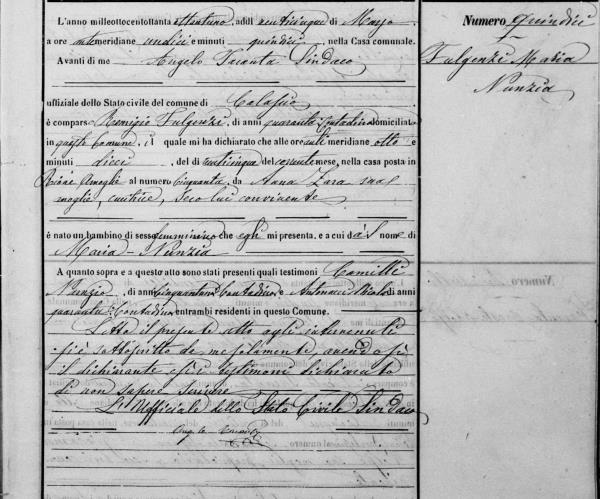 L'anno milleottocentottanta ottantuno, addì venticinque di Marzo
a ore antemeridiane undici e minuti quindici, nella Casa comunale.
Avanti di me Angelo Sindaco
uffiziale dello Stato civile del comune di Calascio
è comparso Remigio Fulgenzi, di anni quaranta Contadino domiciliato
in questo Comune, il quale mi ha dichiarato che alle ore meridiane otto e
minuti dieci, del dì venticinque del corrente mese, nella casa posta in
Rione al numero cinquanta, da Anna Zara sua
moglie, cucitrice, seco lui convivente
è nato un bambino di sesso femminino che egli mi presenta, e a cui dà il nome di
Maria - Nunzia
A quanto sopra e a questo atto sono stati presenti quali testimoni
Nunzio, di anni cinquantuno Contadino e Antonacci Nicola di anni
quaranta Contadino entrambi residenti in questo Comune.
Letto il presente atto agli intervenuti
si è sottoscritto da me solamente avendo
il dichiarante ed i testimoni dichiarato
di non sapere scrivere
L'Uffiziale dello Stato Civile Sindaco
Numero quindici
Fulgenzi Maria
Nunzia
Numero